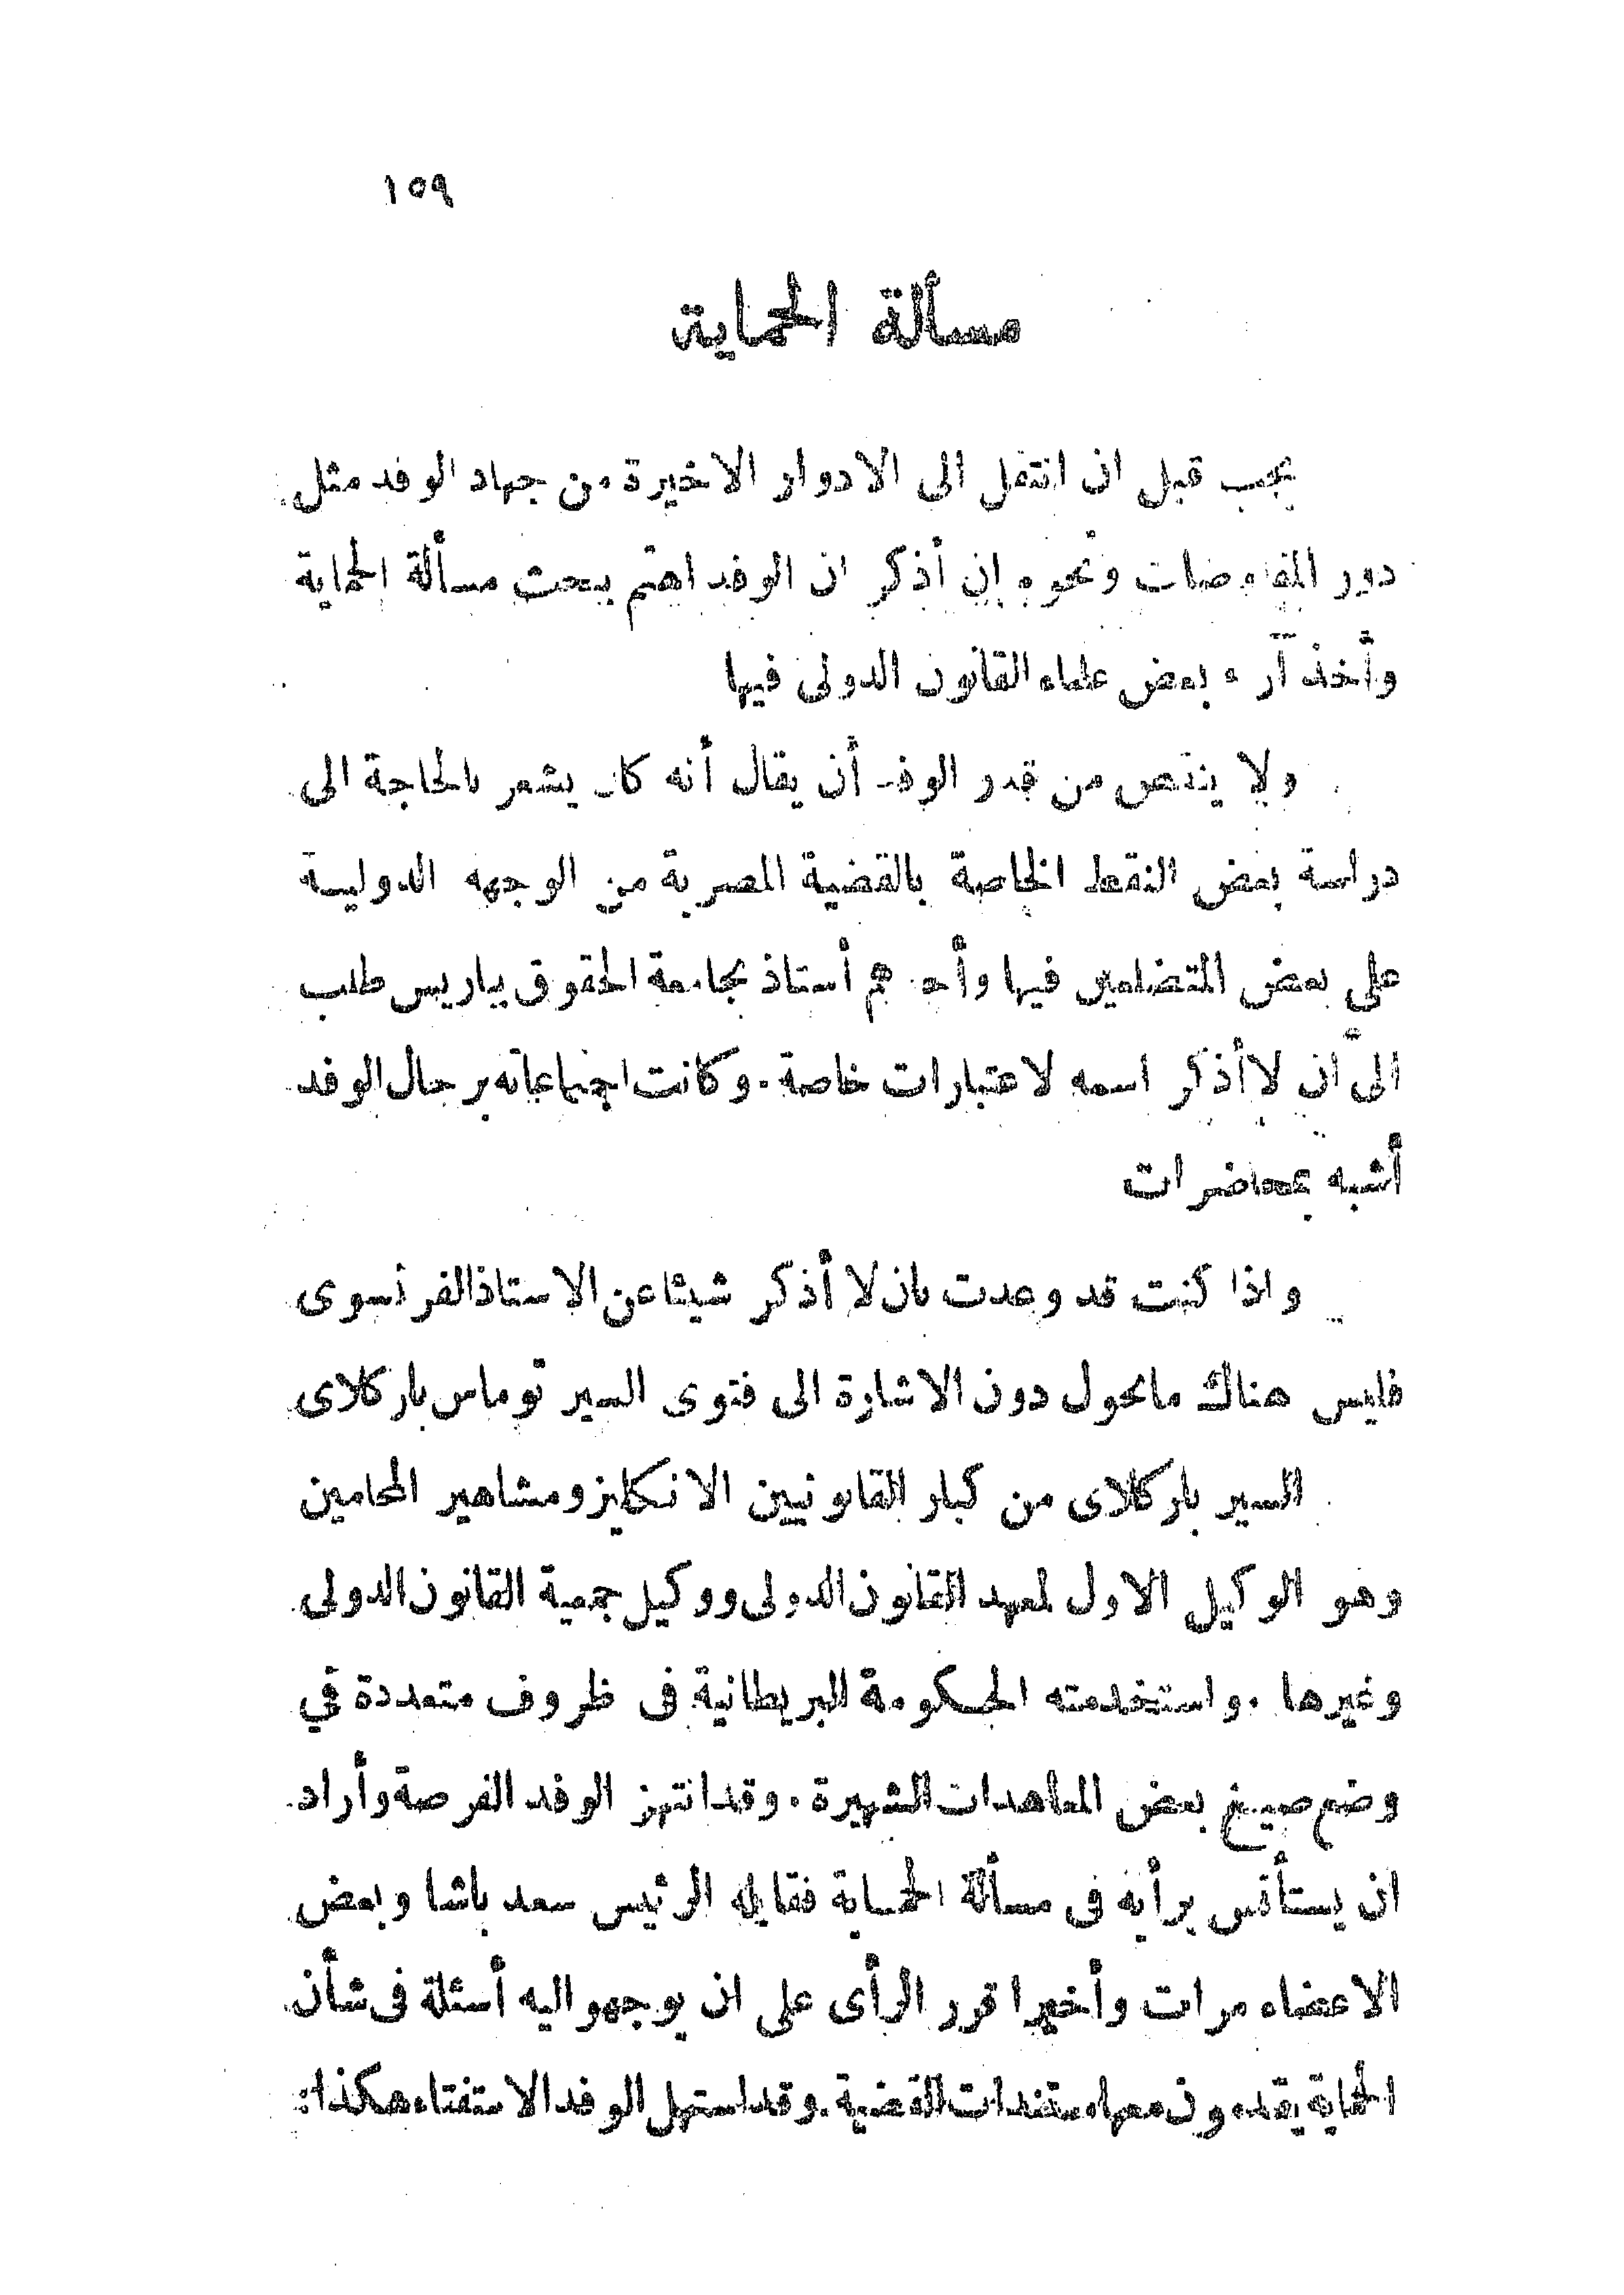 ١٥٩
مسألة الحماية
يجب قبل ان انتقل الى الادوار الاخيرة من جهاد الوفد مثل
دور المفاوضات ونحوه إن أذكر ان الوفد اهتم ببحث مسألة الحماية
وأخذ آراء بعض علماء القانون الدولى فيها
ولا ينتقص من قدر الوفد أن يقال أنه كان يشعر بالحاجة الى
دراسة بعض النقط الخاصة بالقضية المصرية من الوجهه الدولية
على بعض المتضلعين فيها وأحدهم أستاذ بجامعة الحقوق بباريس طلب
الىّ ان لا أذكر اسمه لاعتبارات خاصة . وكانت اجتماعاته برجال الوفد
أشبه بمحاضرات
واذا كنت قد وعدت بان لا أذكر شيئا عن الاستاذ الفرنسوى
فليس هناك ما يحول دون الاشارة الى فتوى السير توماس باركلاى
السير باركلاى من كبار القانونيين الانكليز ومشاهير المحامين
وهو الوكيل الاول لمعهد القانون الدولى ووكيل جمعية القانون الدولى
وغيرها . واستخدمته الحكومة البريطانية فى ظروف متعددة في
وضع صيغ بعض المعاهدات الشهيرة . وقد انتهز الوفد الفرصة وأراد
ان يستأنس برأيه فى مسألة الحماية فقابله الرئيس سعد باشا وبعض
الاعضاء مرات وأخيرا قرر الرأى على ان يوجهوا اليه أسئلة فى شأن
الحماية يقدمون معها مستندات القضية . وقد استهل الوفد الاستفتاء هكذا :